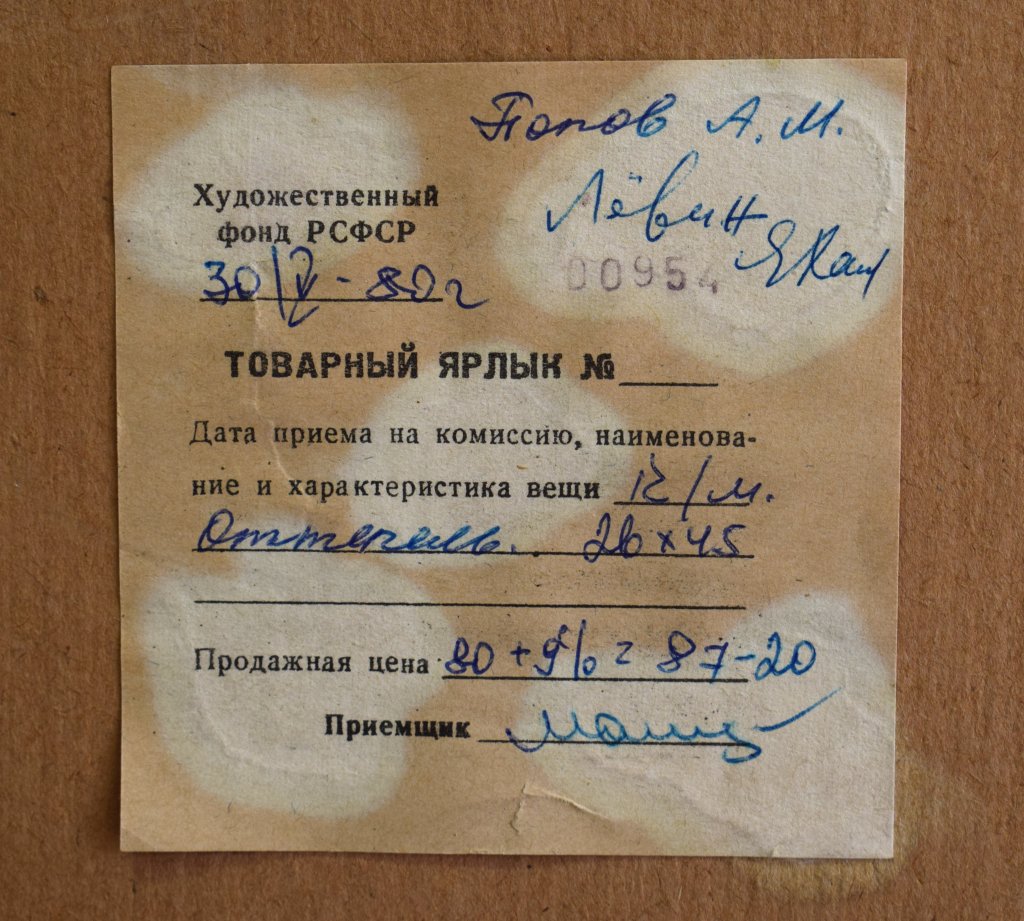 Попов А.М.
Лёвин
Художественный
фонд РСФСР
00954
30/V - 80г
ТОВАРНЫЙ ЯРЛЫК №
Дата приема на комиссию, наименова-
ние и характеристика вещи К/м.
Оттепель. 26×45
Продажная цена 80+9%=87-20
Приемщик